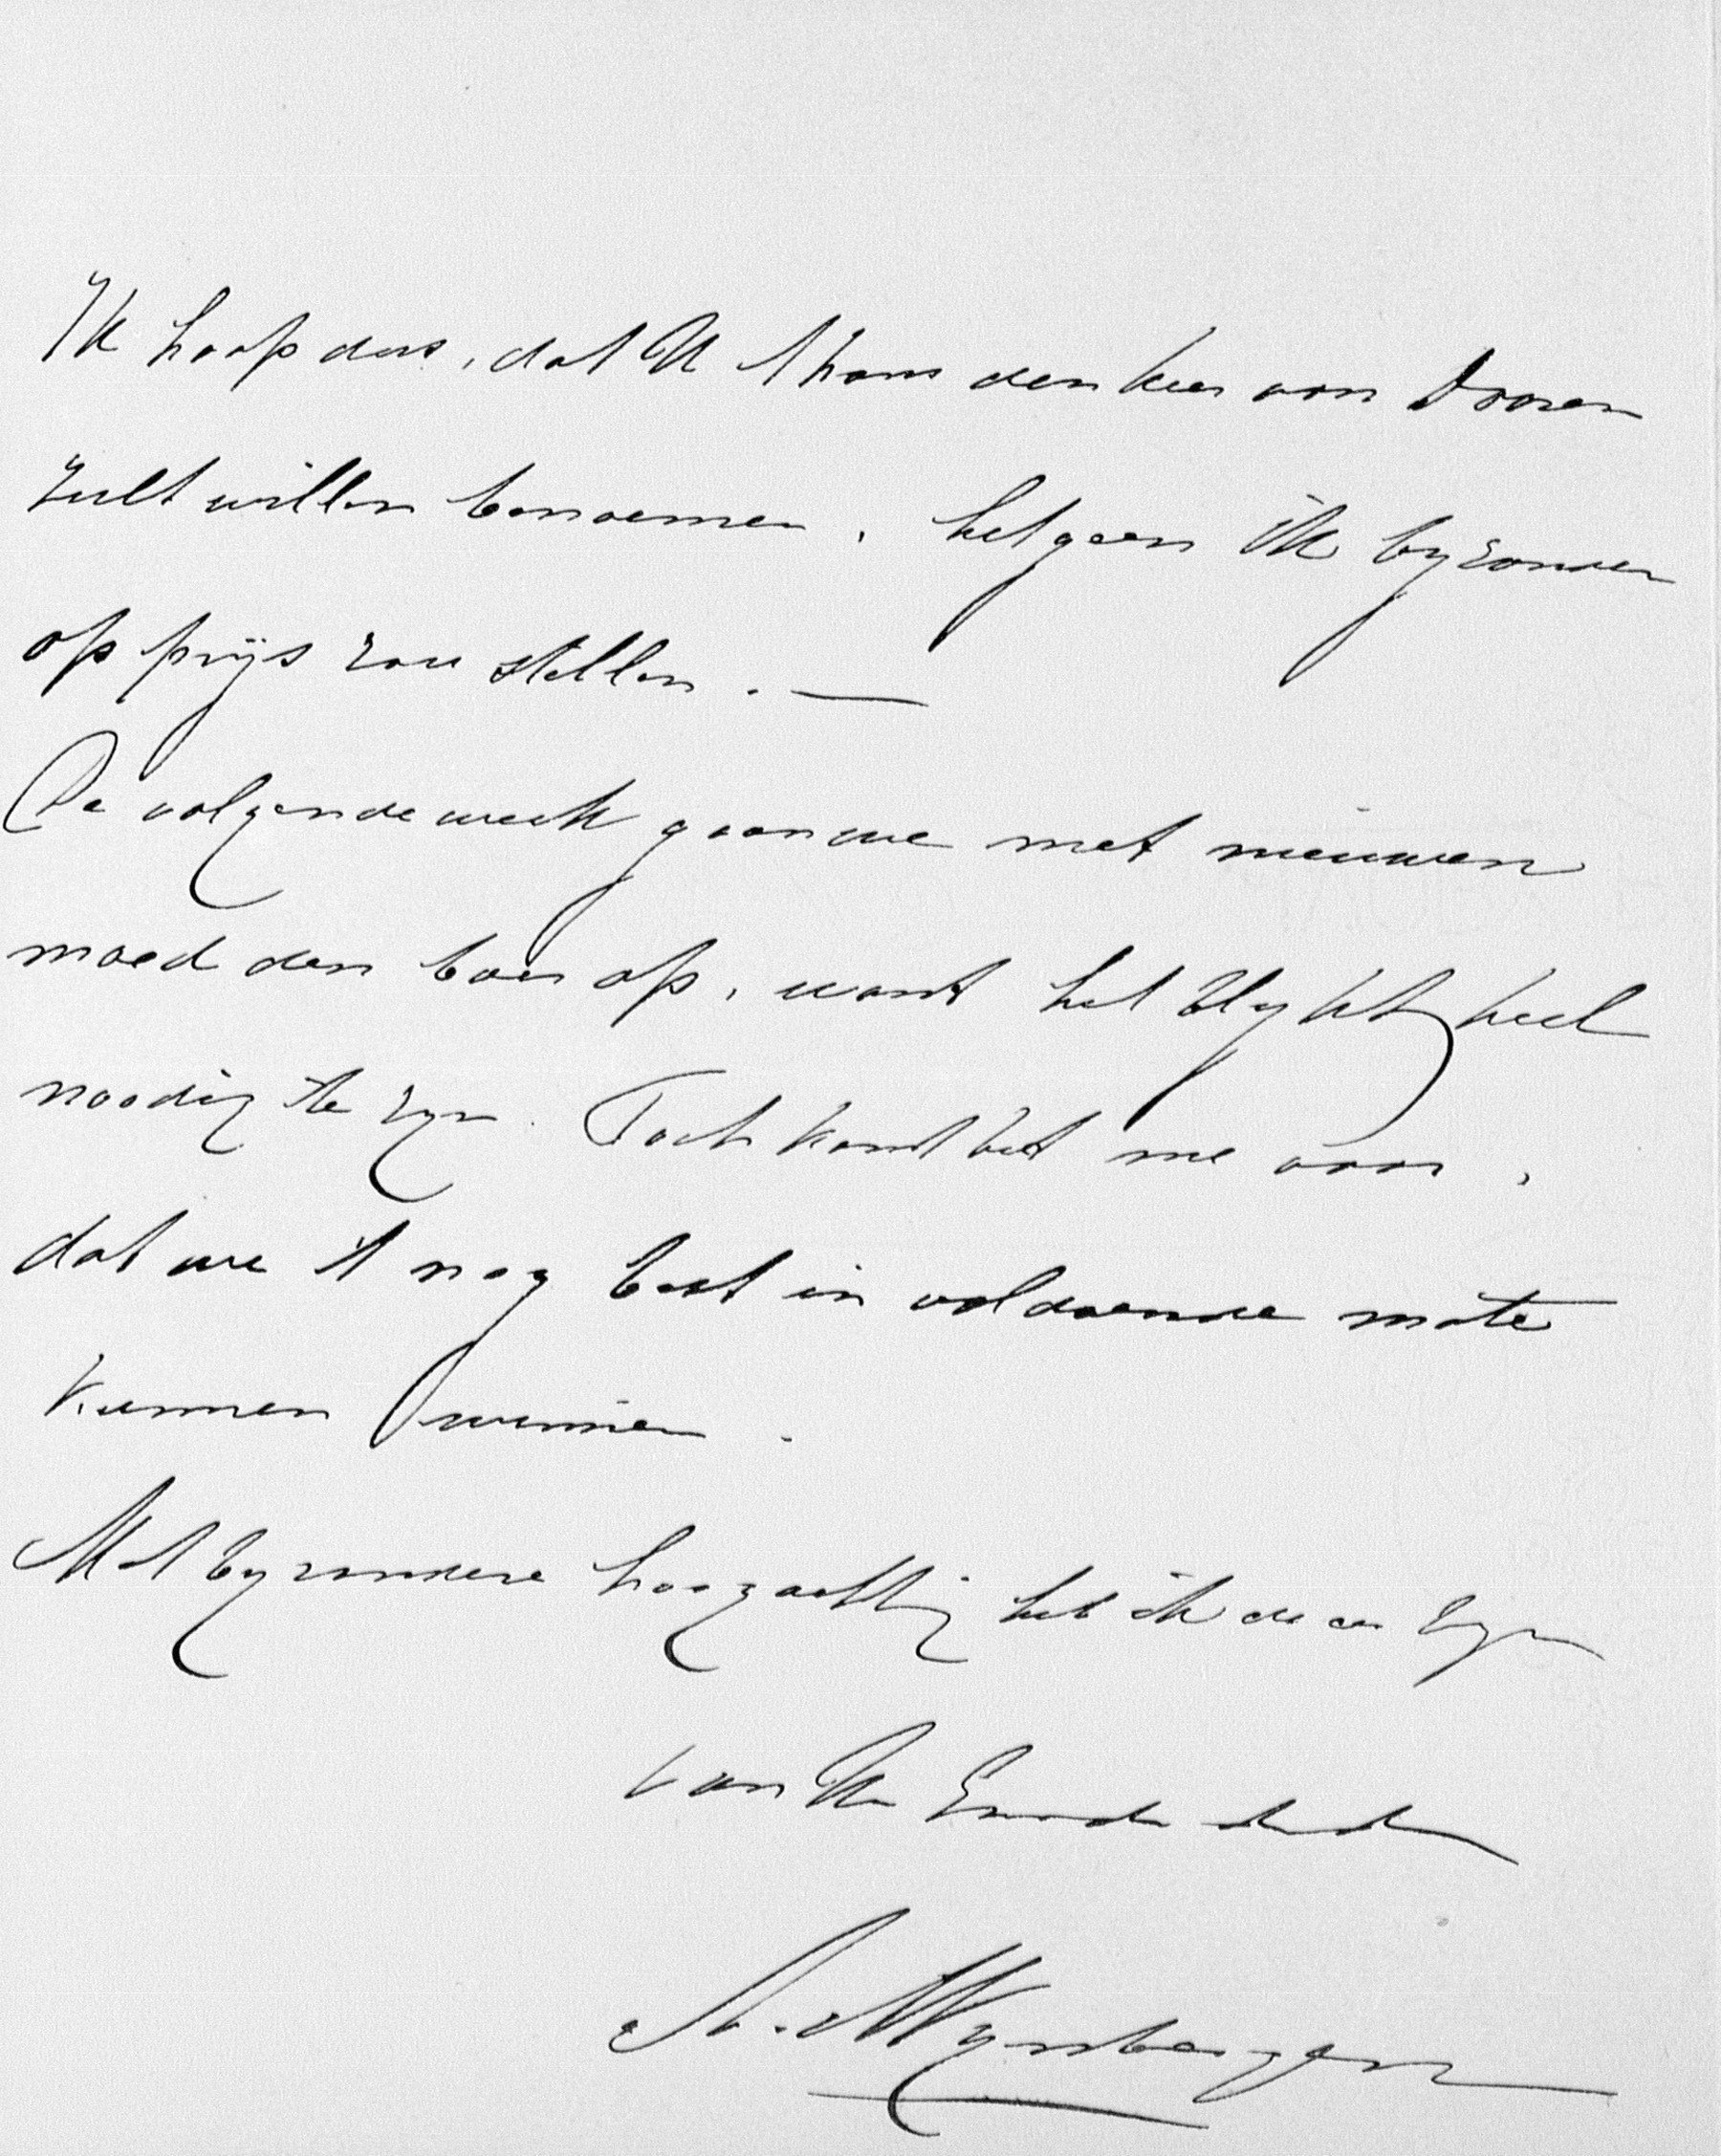 Ik hoop dus, dat U thans den heer van Dooren
zult willen benoemen, hetgeen ik byzonder
op prijs zou stellen. —
De volgende week gaan we met nieuwen
moed den boer op, want het blykt heel
noodig te zyn. Toch komt het me voor,
dat we 't nog best in voldoende mate
kunnen winnen.
Met byzondere hoogachting heb ik de eer te zyn
van Uw
A. v. Wynbergen